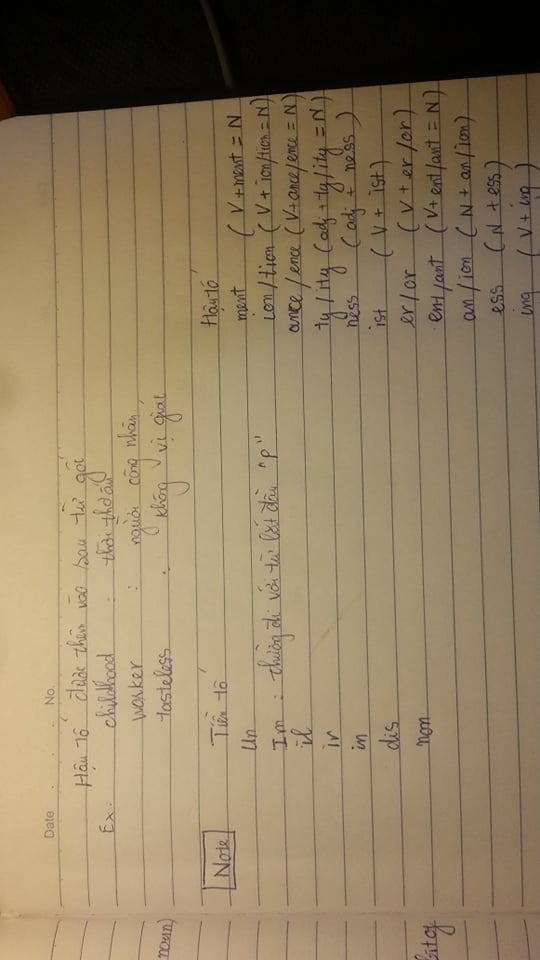 Date . . . No.
Hậu tố được thêm vào sau từ gốc
Ex: childhood : thời thơ ấu
worker : người công nhân
tasteless : không vị giác
Note
Tiền tố
Un
Im : thường đi với từ bắt đầu "p"
il
ir
in
dis
non
Hậu tố
ment (V + ment = N
ion/tion (V + ion/tion = N)
ance/ence (V + ance/ence = N)
ty/ity (adj + ty/ity = N)
ness (adj + ness)
ist (V + ist)
er/or (V + er/or)
ent/ant (V + ent/ant = N)
an/ion (N + an/ion)
ess (N + ess)
ing (V + ing
noun)